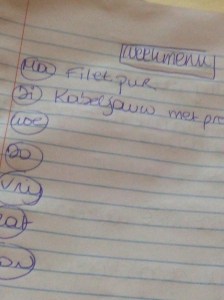 weekmenu
Ma Filet pur
Di Kabeljauw met pre
woe
Do
Vrij
zat
zon